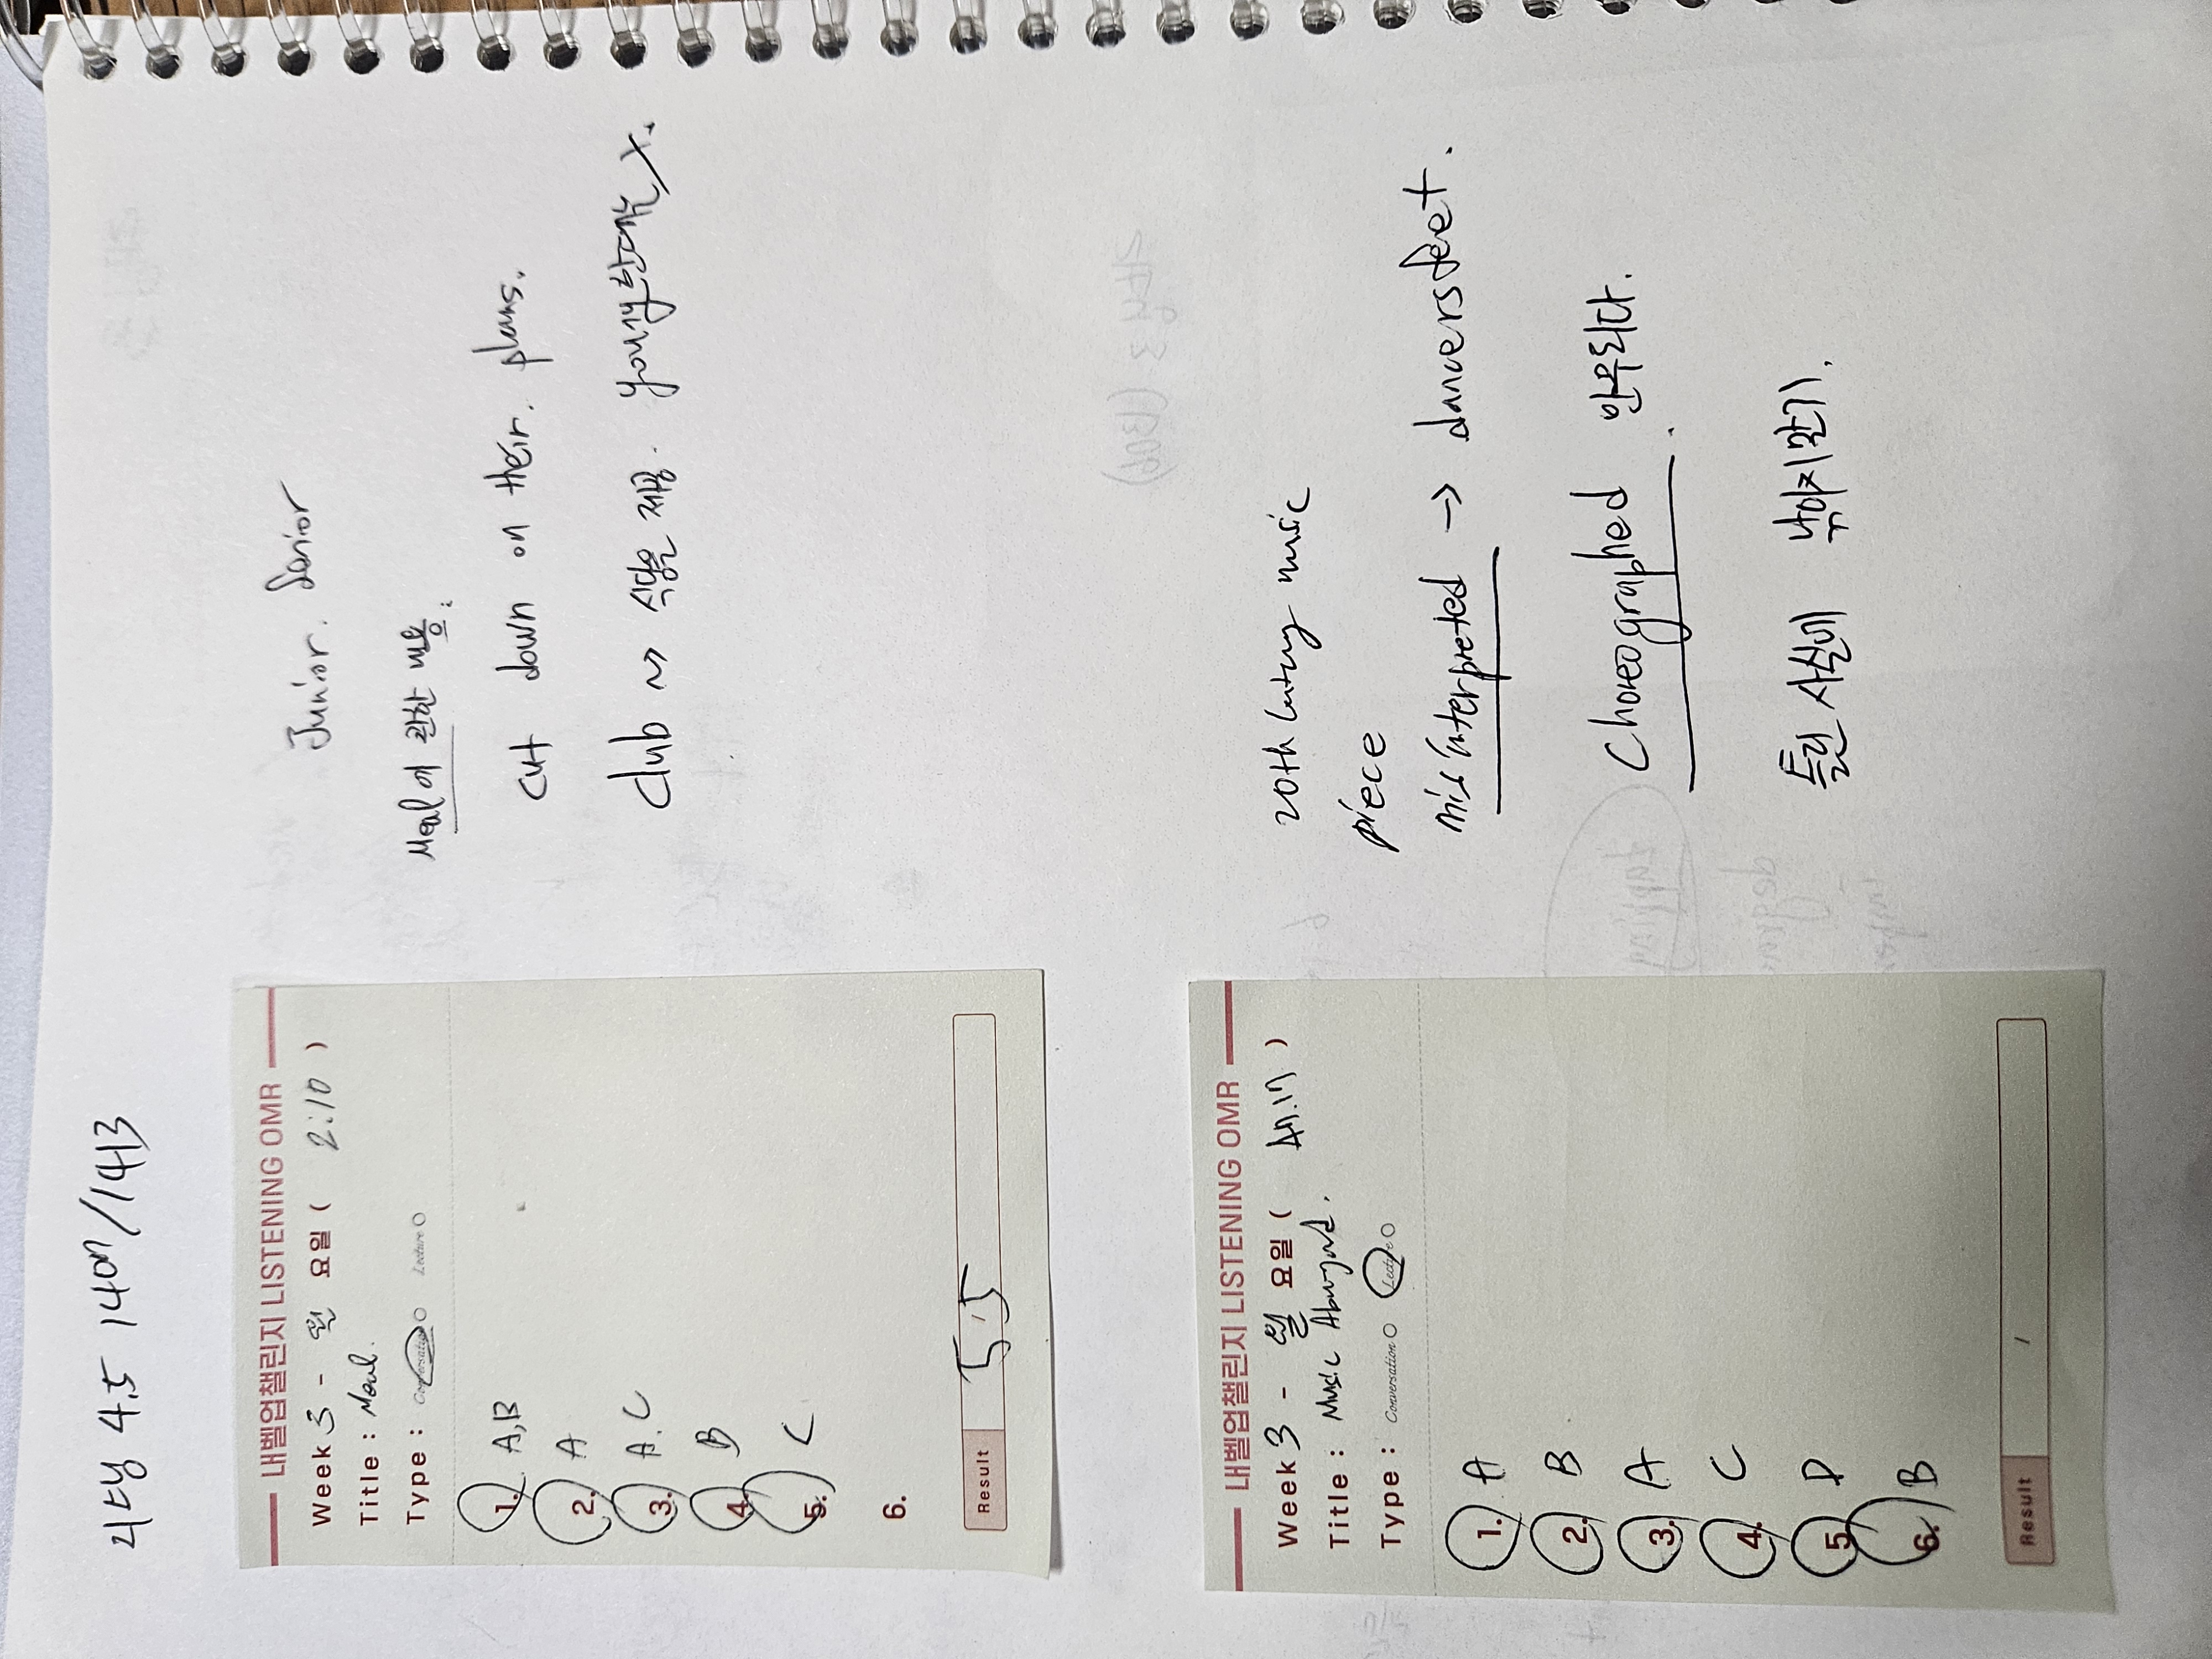 리스닝 4.5 1407/1413
내벨업챌린지 LISTENING OMR
Week 3 - 월 요일 ( 2:10 )
Title : Meal.
Type : Conversation ○ Lecture ○
1. A,B
2. A
3. A.C
4. B
5. C
6.
Result 5.5
Junior. Senior
Meal에 관한 내용.
cut down on their. plans.
Club ~> 식당을 제공.
내벨업챌린지 LISTENING OMR
Week 3 - 월 요일 ( )
Title : Music
Type : Conversation ○ Lecture ○
1. A
2. B
3. A
4. C
5. D
6. B
Result /
20th century music
piece
misinterpreted → dancers feet.
Choreographed. 안무되다.
틀린 사실에 낚이지 말기.